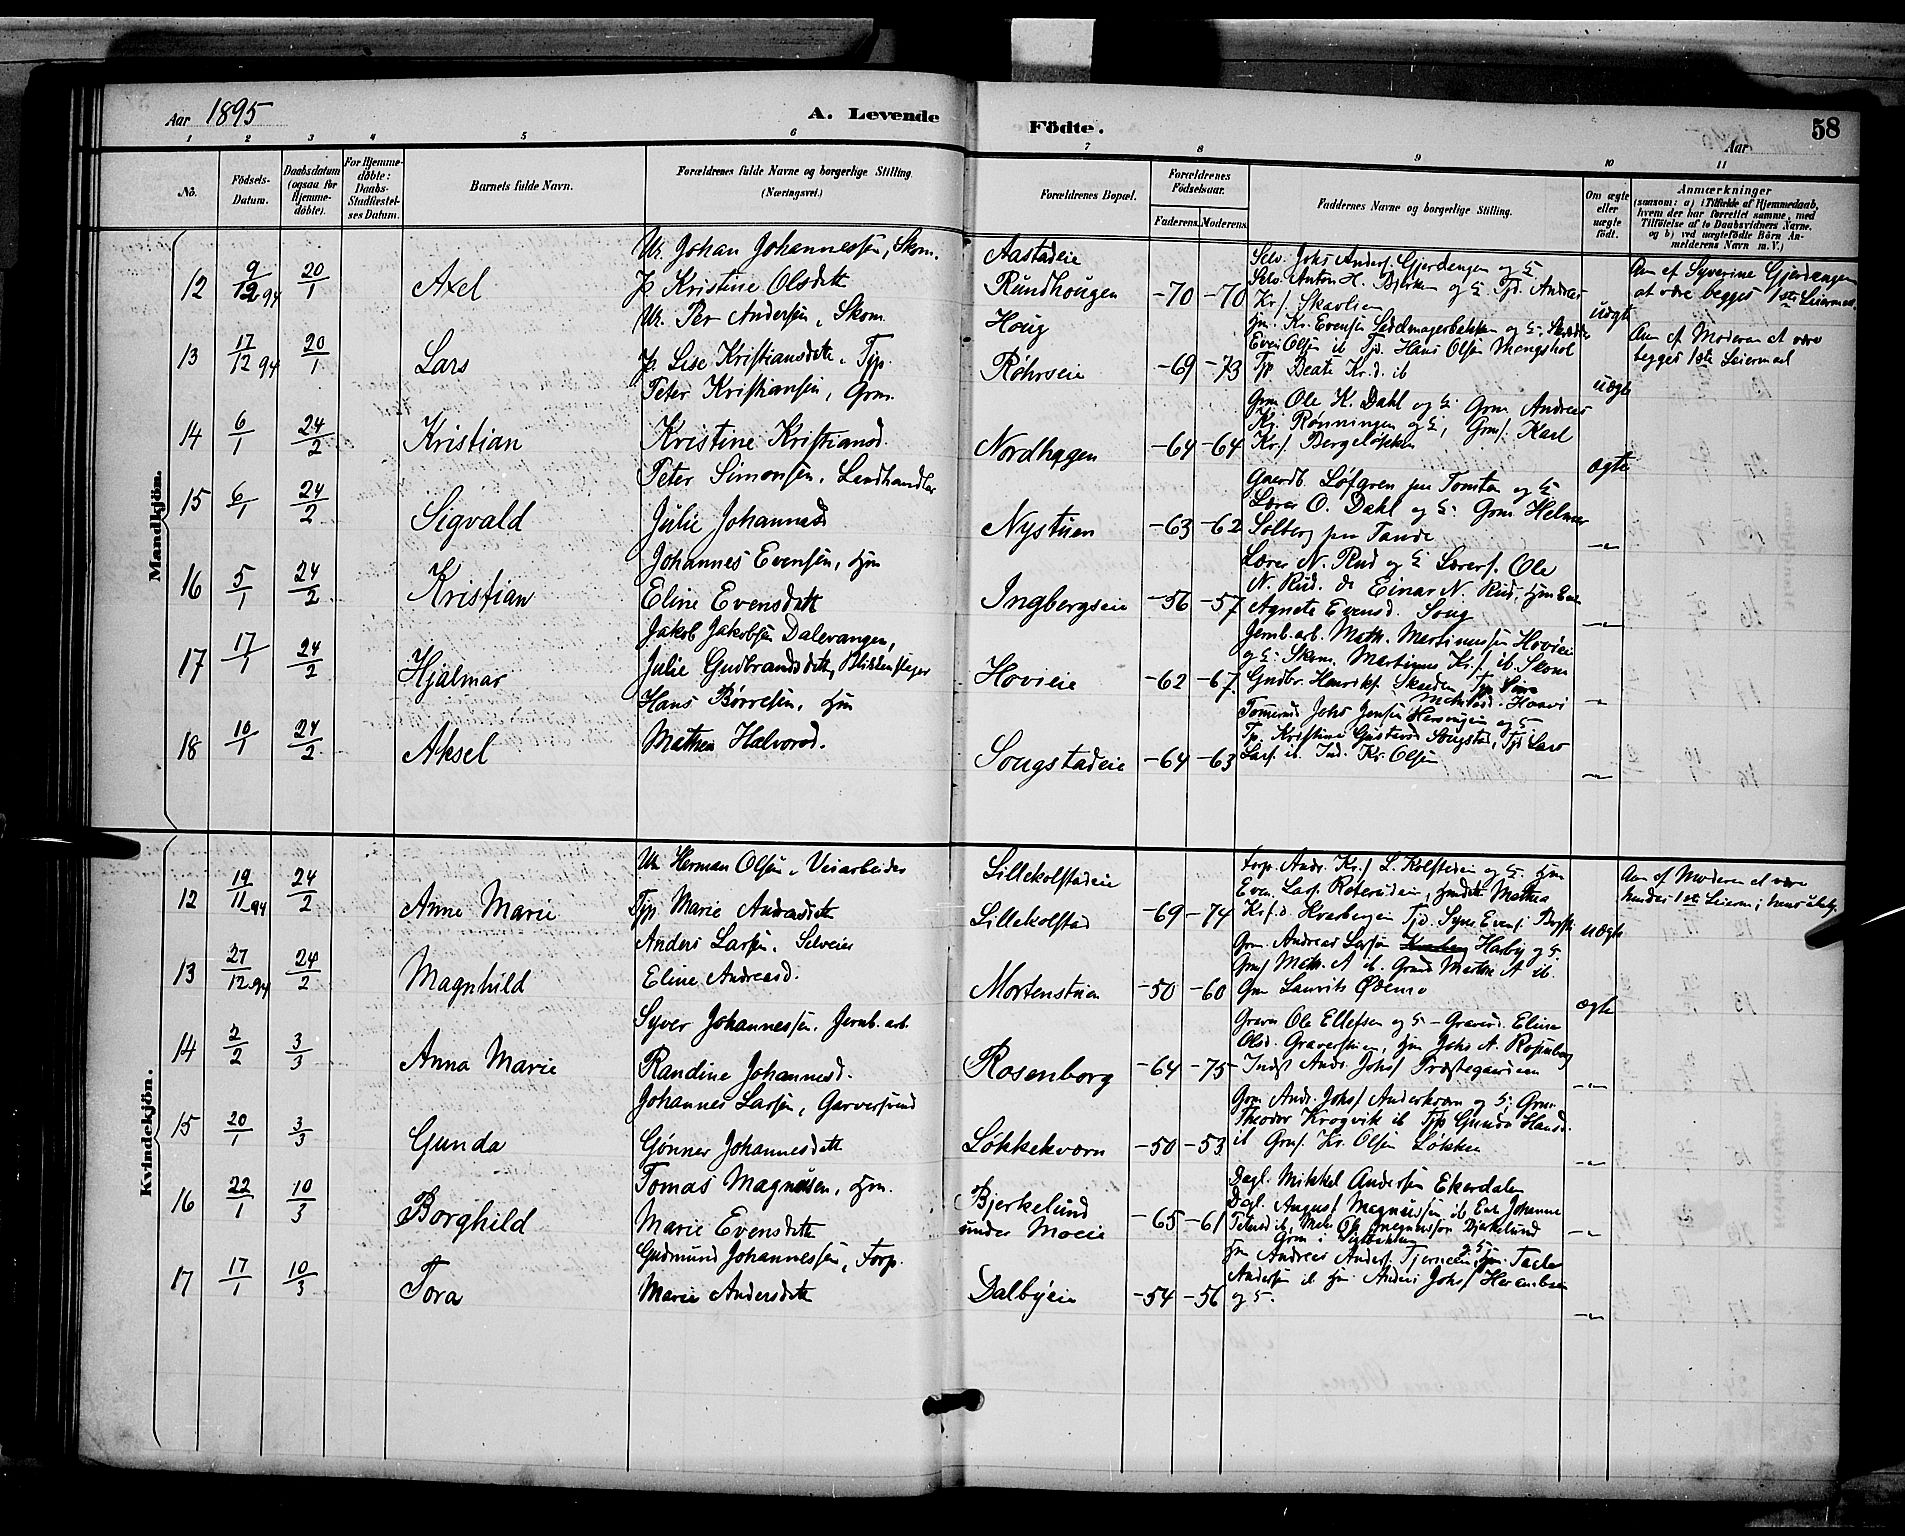 Aar 1895
A. Levende Födte.
58
Aar
1 2 3 4 5 6 7 8 9 10 11
No.
Födsels-Datum.
Daabsdatum (ogsaa for Hjemme-döbte).
For Hjemme-döbte: Daabs-Stadfæstel-ses Datum.
Barnets fulde Navn.
Forældrenes fulde Navne og borgerlige Stilling. (Næringsvei.)
Forældrenes Bopæl.
Forældrenes Födselsaar.
Faderens. Moderens.
Faddernes Navne og borgerlige Stilling.
Om ægte eller uægte födt.
Anmærkninger
(saasom: a) i Tilfælde af Hjemmedaab, hvem der har forrettet samme, med Tilföielse af to Daabsvidners Navne. og b) ved uægtefödte Börn An-melderens Navn m. V.)
Mandkjön.
12 9/12 94 20/1 Axel
Ur. Johan Johannessen, Skom.
P. Kristine Olsdatt
Aastadeie
Rundhougen -70 -70
Selv. Johs Anders. Gjerdengen og H.
Selv. Anton H. Bjerken og H. Tjd. Andreas
Kr.s. Skavlien
uægte
Anm. af Syverine Gjerdengen
at være begges 1ste Leiermaal
13 17/12 94 20/1 Lars
Ur. Per Andersen, Skom.
P. Lise Kristiansdatt. Tjp.
Houg
Røhrseie -69 -73
Even Olsen ib Tjd. Hans Olsen Mengshol
Tjp Beate Kr.d. ib
uægte
Anm. af Moderen at være
begges 1ste Leiermaal
14 6/1 24/2 Kristian
Peter Kristiansen, Grm.
Kristine Kristiansd.
Nordhagen -64 -64
Grm Ole K. Dahl og H. Grm. Andreas
Kr. Rønningen og H, Grms. Karl
Krs. Bergeløkken
ægte
15 6/1 24/2 Sigvald
Peter Simonsen, Landhandler
Julie Johannesd
Nystuen -63 -62
Gaardb. Løfgren paa Tomten og H.
Lærer O. Dahl og H. Grm Helmer
Solberg paa Tande
-"-
16 5/1 24/2 Kristian
Johannes Evensen, Hm
Eline Evensdatt
Ingbergseie -56 -57
Lærer N. Rud og H. Lærers. Ole
N. Rud. do Einar N. Rud. Hm Even
Agnete Evensd. Soug
-"-
17 17/1 24/2 Hjalmar
Jakob Jakobsen Dalevangen,
Julie Gudbrandsdatt, Blikkenslager
Hovieie -62 -67
Jernb.arb. Math. Martinussen Hovieie
og H. Skom. Martinus Kr.s. ib Skom
Gudbr. Henriks.
-"-
18 10/1 24/2 Aksel
Hans Børresen, Hm
Mathea Halvorsd.
Sougstadeie -64 -63
Tømmerm. Johs Jensen
Tp. Kristine Gustavsd Sougstad, Tjd Lars
Lars. ib. Ind. Kr. Olsen
-"-
Kvindekjön.
12 19/11 94 24/2 Anne Marie
Ur Herman Olsen, Veiarbeider
Tjp Marie Andreasdatt
Lillekolstadeie
Lillekolstad -69 -74
Forp. Andr. Kr.s L. Kolstadeie og H. Hm
Even Lars. Roterudeie, Hmdatt. Mathea
Krs.d. Hvarbergen Tjd. Syver Evens.
uægte
Anm af Moderen at være
hendes 1ste Leierm;
13 27/12 94 24/2 Magnhild
Anders Larsen, Selveier
Eline Andreasd.
Mortenstuen -50 -60
Grm. Andreas Larsen Harby og H.
Grms Math. A ib. Grmd Marthe A ib.
Grm Laurits Ødemo
ægte
14 2/2 3/3 Anna Marie
Syver Johannessen. Jernb. arb.
Randine Johannesd.
Rosenborg -64 -75
Graver Ole Ellefsen og H - Graverd. Eline
Olsd. Graverstuen, Hm Johs A. Rosenborg
Indst Andr. Johs Præstegaardseie
-"-
15 20/1 3/3 Gunda
Johannes Larsen, Garversvend
Gønner Johannesdatt
Løkkekværn -50 -53
Grm Andr. Johs Anderkværn og H; Grm
Theodor Krogvik ib Tjp Gunda Hansd.
ib Grms. Kr. Olsen Løkken
-"-
16 22/1 10/3 Borghild
Tomas Magnussen, Hm.
Marie Evensdatt
Bjerkelund
under Moeie -65 -61
Dagl. Mikkel Andersen Ekerdalen
Dagl. August Magnussen ib. Enke Johanne
Petersd ib, Ole Magnussen Bjerkelund
-"-
17 17/1 10/3 Tora
Gudmund Johannessen, Forp.
Marie Andersdatt
Dalbyeie -54 -56
Hm Andreas Anders. Tjerneeie og H, Hm.
Andersen ib Hm. Anders Johs
og H.
-"-